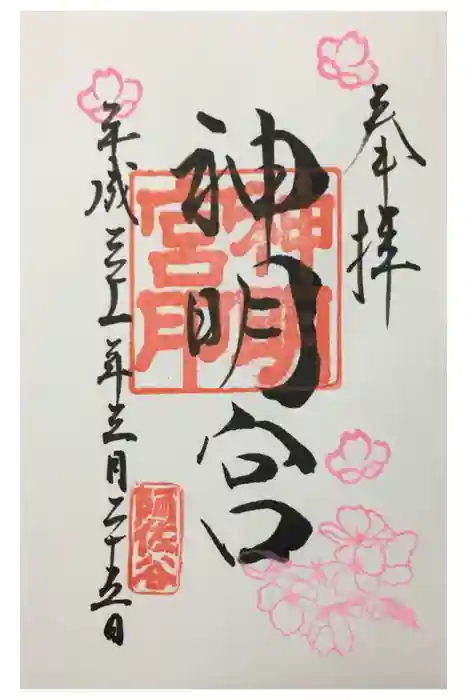 奉拝
神明宮
平成三十一年三月二十三日
神明
宮印
阿佐谷